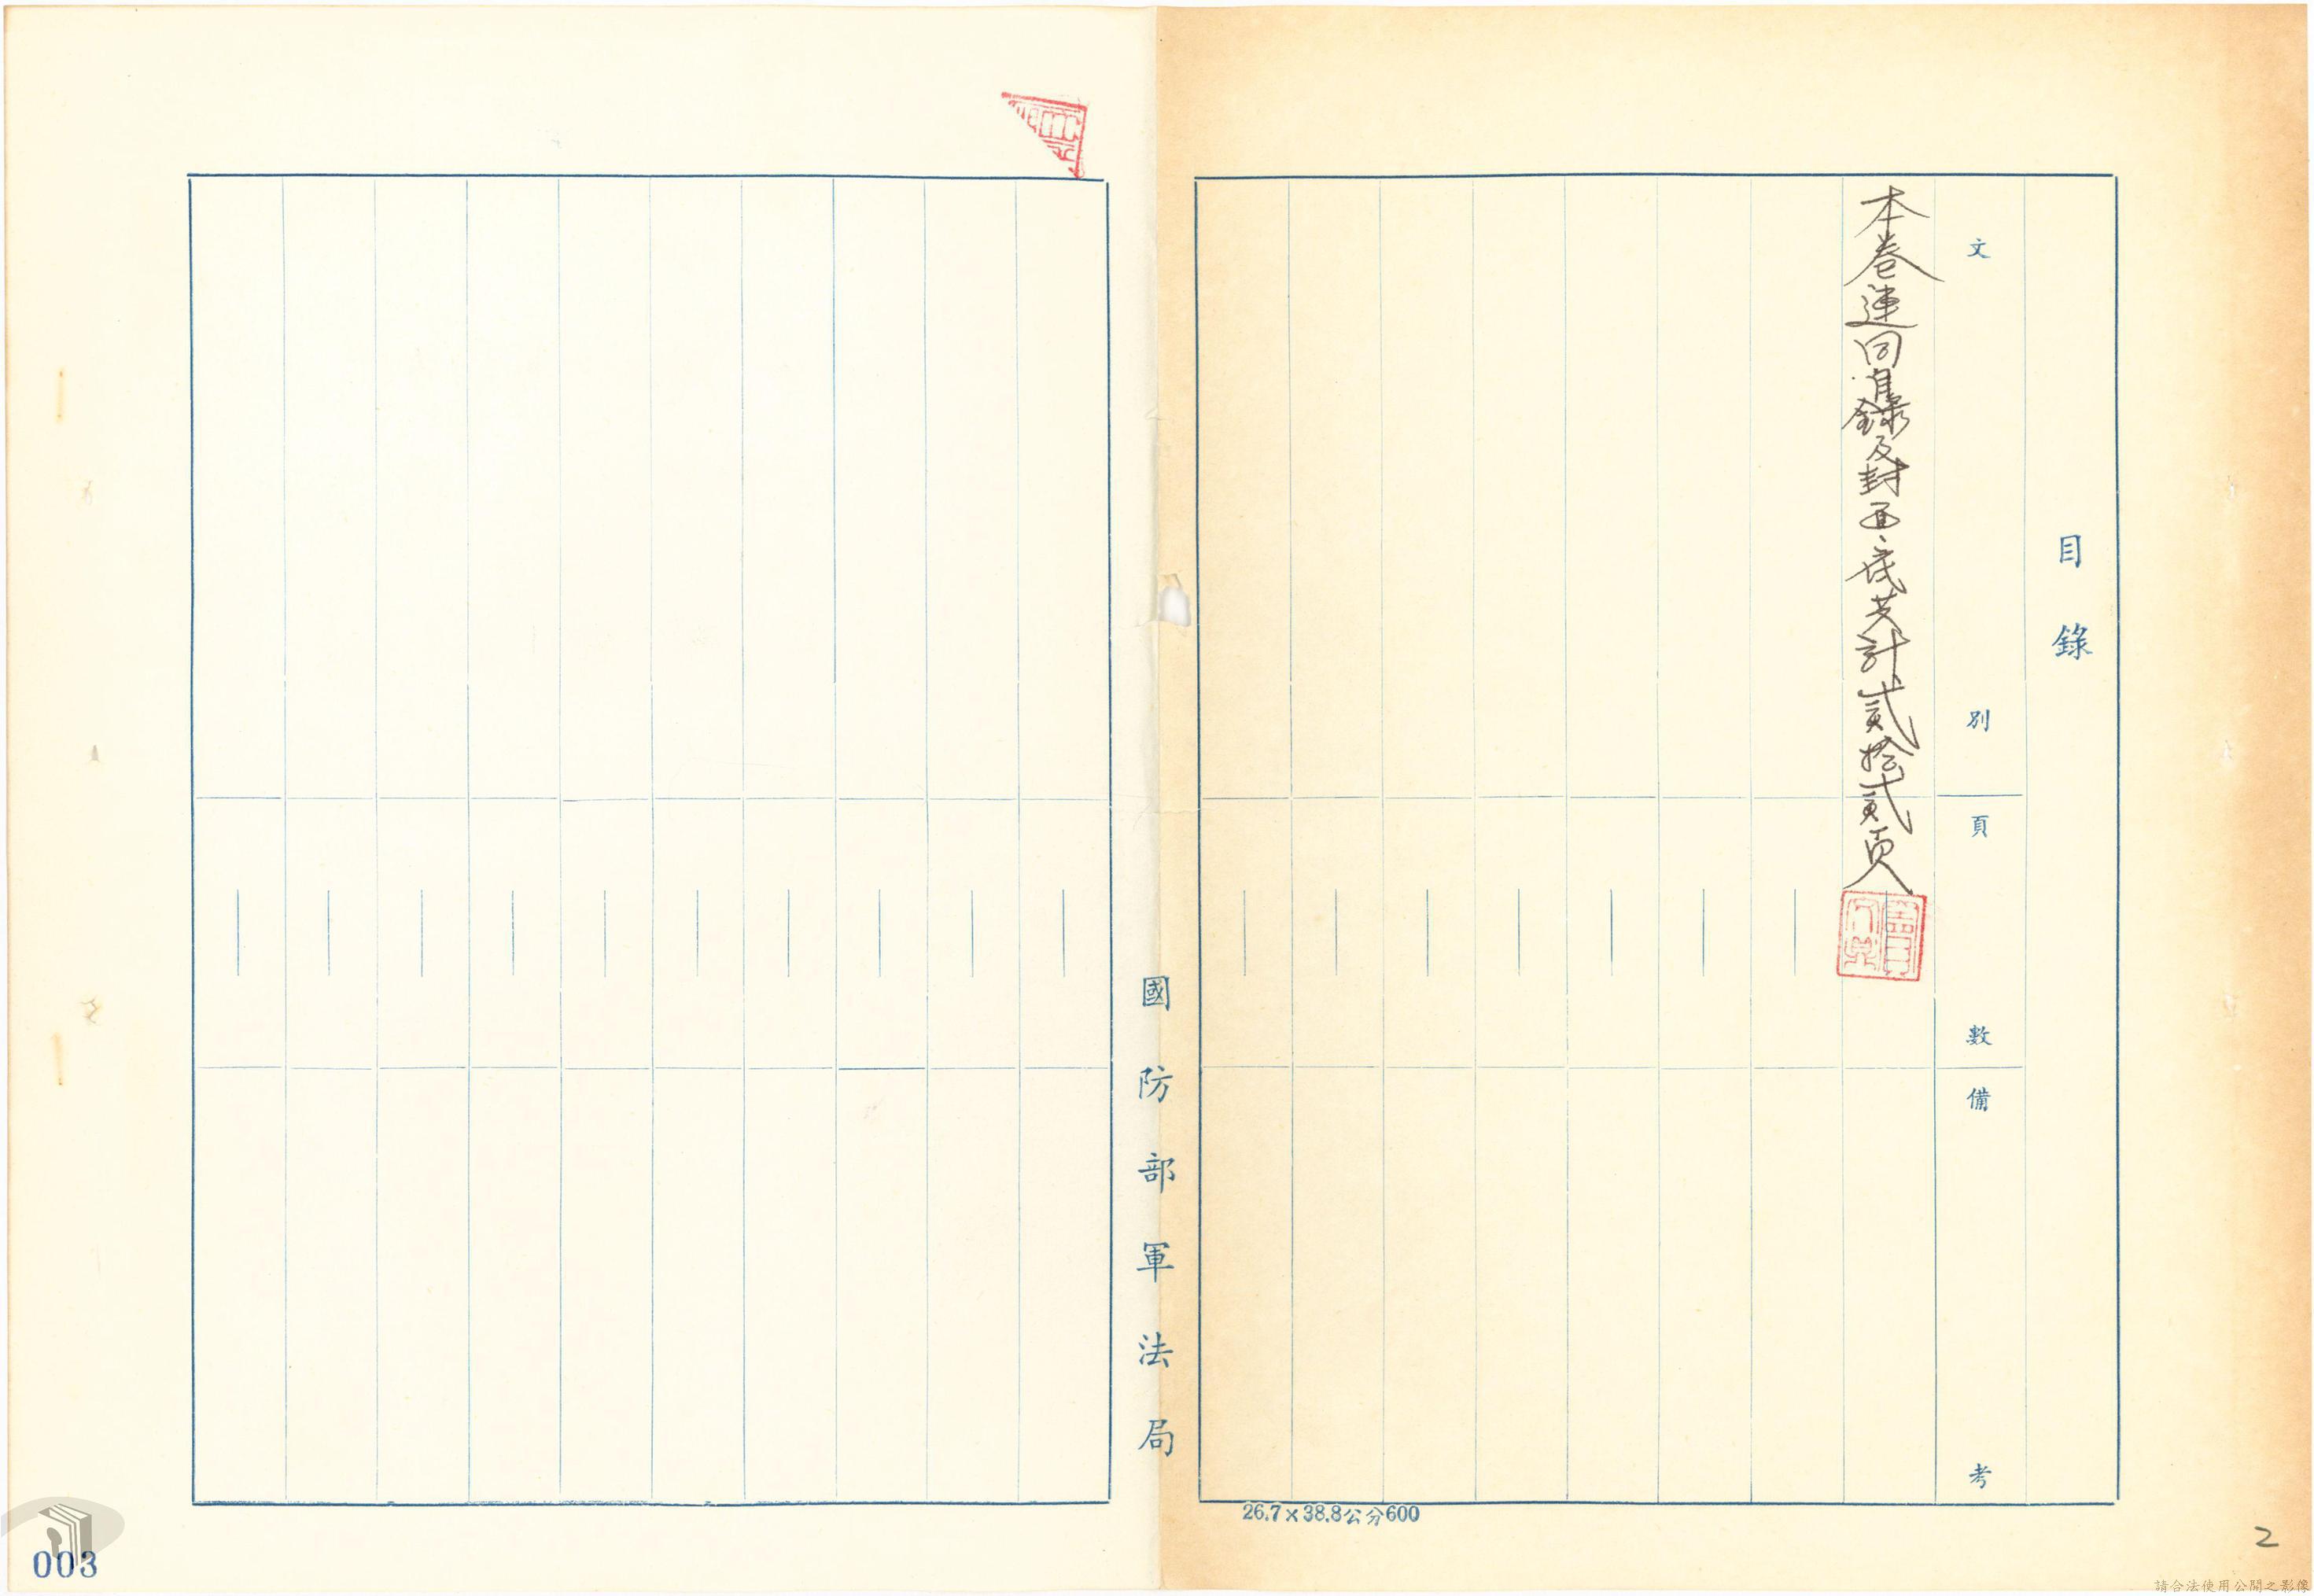 目錄
文別
頁數
備考
本卷連同目錄及封面、底共計貳拾貳頁
國防部軍法局
26.7×38.8公分600
2
003
請合法使用公開之影像